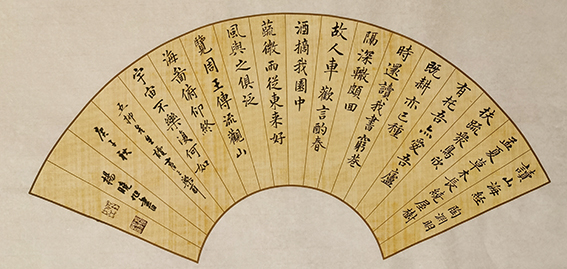 讀山海經 陶淵明
孟夏草木長繞屋樹
扶疏衆鳥欣
有托吾亦愛吾廬
既耕亦已種
時還讀我書窮巷
隔深轍頗回
故人車歡言酌春
酒摘我園中
蔬微雨從東来好
風與之俱泛
覽周王傳流觀山
海啚俯仰終
宇宙不樂復何如
五柳先生讀書
庚子秋
楊曉 書